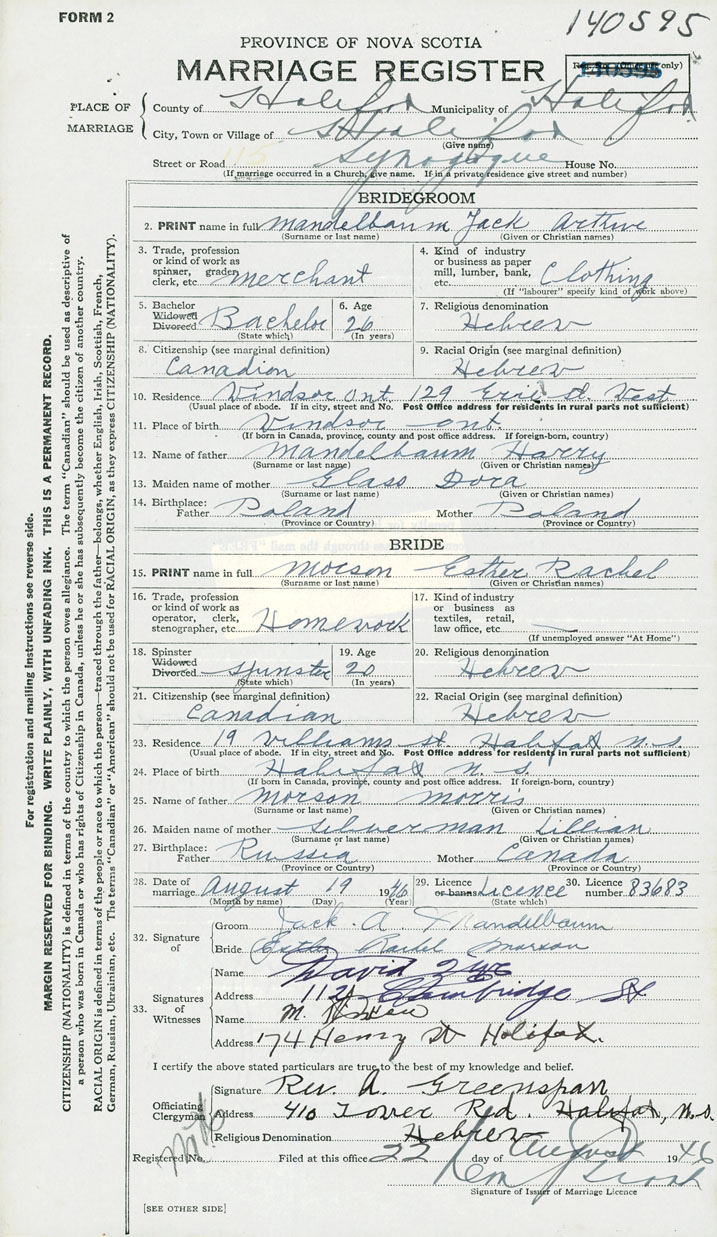 FORM 2
140595
PROVINCE OF NOVA SCOTIA
MARRIAGE REGISTER
140595
PLACE OF MARRIAGE
County of Halifax Municipality of Halifax
City, Town or Village of Halifax
(Give name)
Street or Road 115 Synagogue House No.
(If marriage occurred in a Church, give name. If in a private residence give street and number)
BRIDEGROOM
2. PRINT name in full Mandelbaum Jack Arthur
(Surname or last name) (Given or Christian names)
3. Trade, profession or kind of work as spinner, grader, clerk, etc. Merchant
4. Kind of industry or business as paper mill, lumber, bank, etc. Clothing
(If "labourer" specify kind of work above)
5. Bachelor Widowed Divorced Bachelor
(State which)
6. Age 26
(In years)
7. Religious denomination Hebrew
8. Citizenship (see marginal definition) Canadian
9. Racial Origin (see marginal definition) Hebrew
10. Residence Windsor Ont. 129 Erie St. West
(Usual place of abode. If in city, street and No. Post Office address for residents in rural parts not sufficient)
11. Place of birth Windsor Ont.
(If born in Canada, province, county and post office address. If foreign-born, country)
12. Name of father Mandelbaum Harry
(Surname or last name) (Given or Christian names)
13. Maiden name of mother Glass Dora
(Surname or last name) (Given or Christian names)
14. Birthplace: Father Poland Mother Poland
(Province or Country) (Province or Country)
BRIDE
15. PRINT name in full Morson Esther Rachel
(Surname or last name) (Given or Christian names)
16. Trade, profession or kind of work as operator, clerk, stenographer, etc. Homework
17. Kind of industry or business as textiles, retail, law office, etc.
(If unemployed answer "At Home")
18. Spinster Widowed Divorced Spinster
(State which)
19. Age 20
(In years)
20. Religious denomination Hebrew
21. Citizenship (see marginal definition) Canadian
22. Racial Origin (see marginal definition) Hebrew
23. Residence 19 Williams St. Halifax N.S.
(Usual place of abode. If in city, street and No. Post Office address for residents in rural parts not sufficient)
24. Place of birth Halifax N.S.
(If born in Canada, province, county and post office address. If foreign-born, country)
25. Name of father Morson Morris
(Surname or last name) (Given or Christian names)
26. Maiden name of mother Silverman Lillian
(Surname or last name) (Given or Christian names)
27. Birthplace: Father Russia Mother Canada
(Province or Country) (Province or Country)
28. Date of marriage August 19 1946
(Month by name) (Day) (Year)
29. Licence or banns Licence
(State which)
30. Licence number 83683
32. Signature of
Groom Jack A Mandelbaum
Bride Esther Rachel Morson
33. Signatures of Witnesses
Name David
Address 112 Cambridge St
Name M.
Address 174 Henry St Halifax.
I certify the above stated particulars are true to the best of my knowledge and belief.
Officiating Clergyman
Signature Rev. A. Greenspan
Address 410 Tower Rd. Halifax, N.S.
Religious Denomination Hebrew
Registered No. Filed at this office 22 day of August 1946
Signature of Issuer of Marriage Licence
[SEE OTHER SIDE]
For registration and mailing instructions see reverse side.
MARGIN RESERVED FOR BINDING. WRITE PLAINLY, WITH UNFADING INK. THIS IS A PERMANENT RECORD.
CITIZENSHIP (NATIONALITY) is defined in terms of the country to which the person owes allegiance. The term "Canadian" should be used as descriptive of
a person who was born in Canada or who has rights of Citizenship in Canada, unless he or she has subsequently become the citizen of another country.
RACIAL ORIGIN is defined in terms of the people or race to which the person—traced through the father—belongs, whether English, Irish, Scottish, French,
German, Russian, Ukrainian, etc. The terms "Canadian" or "American" should not be used for RACIAL ORIGIN, as they express CITIZENSHIP (NATIONALITY).